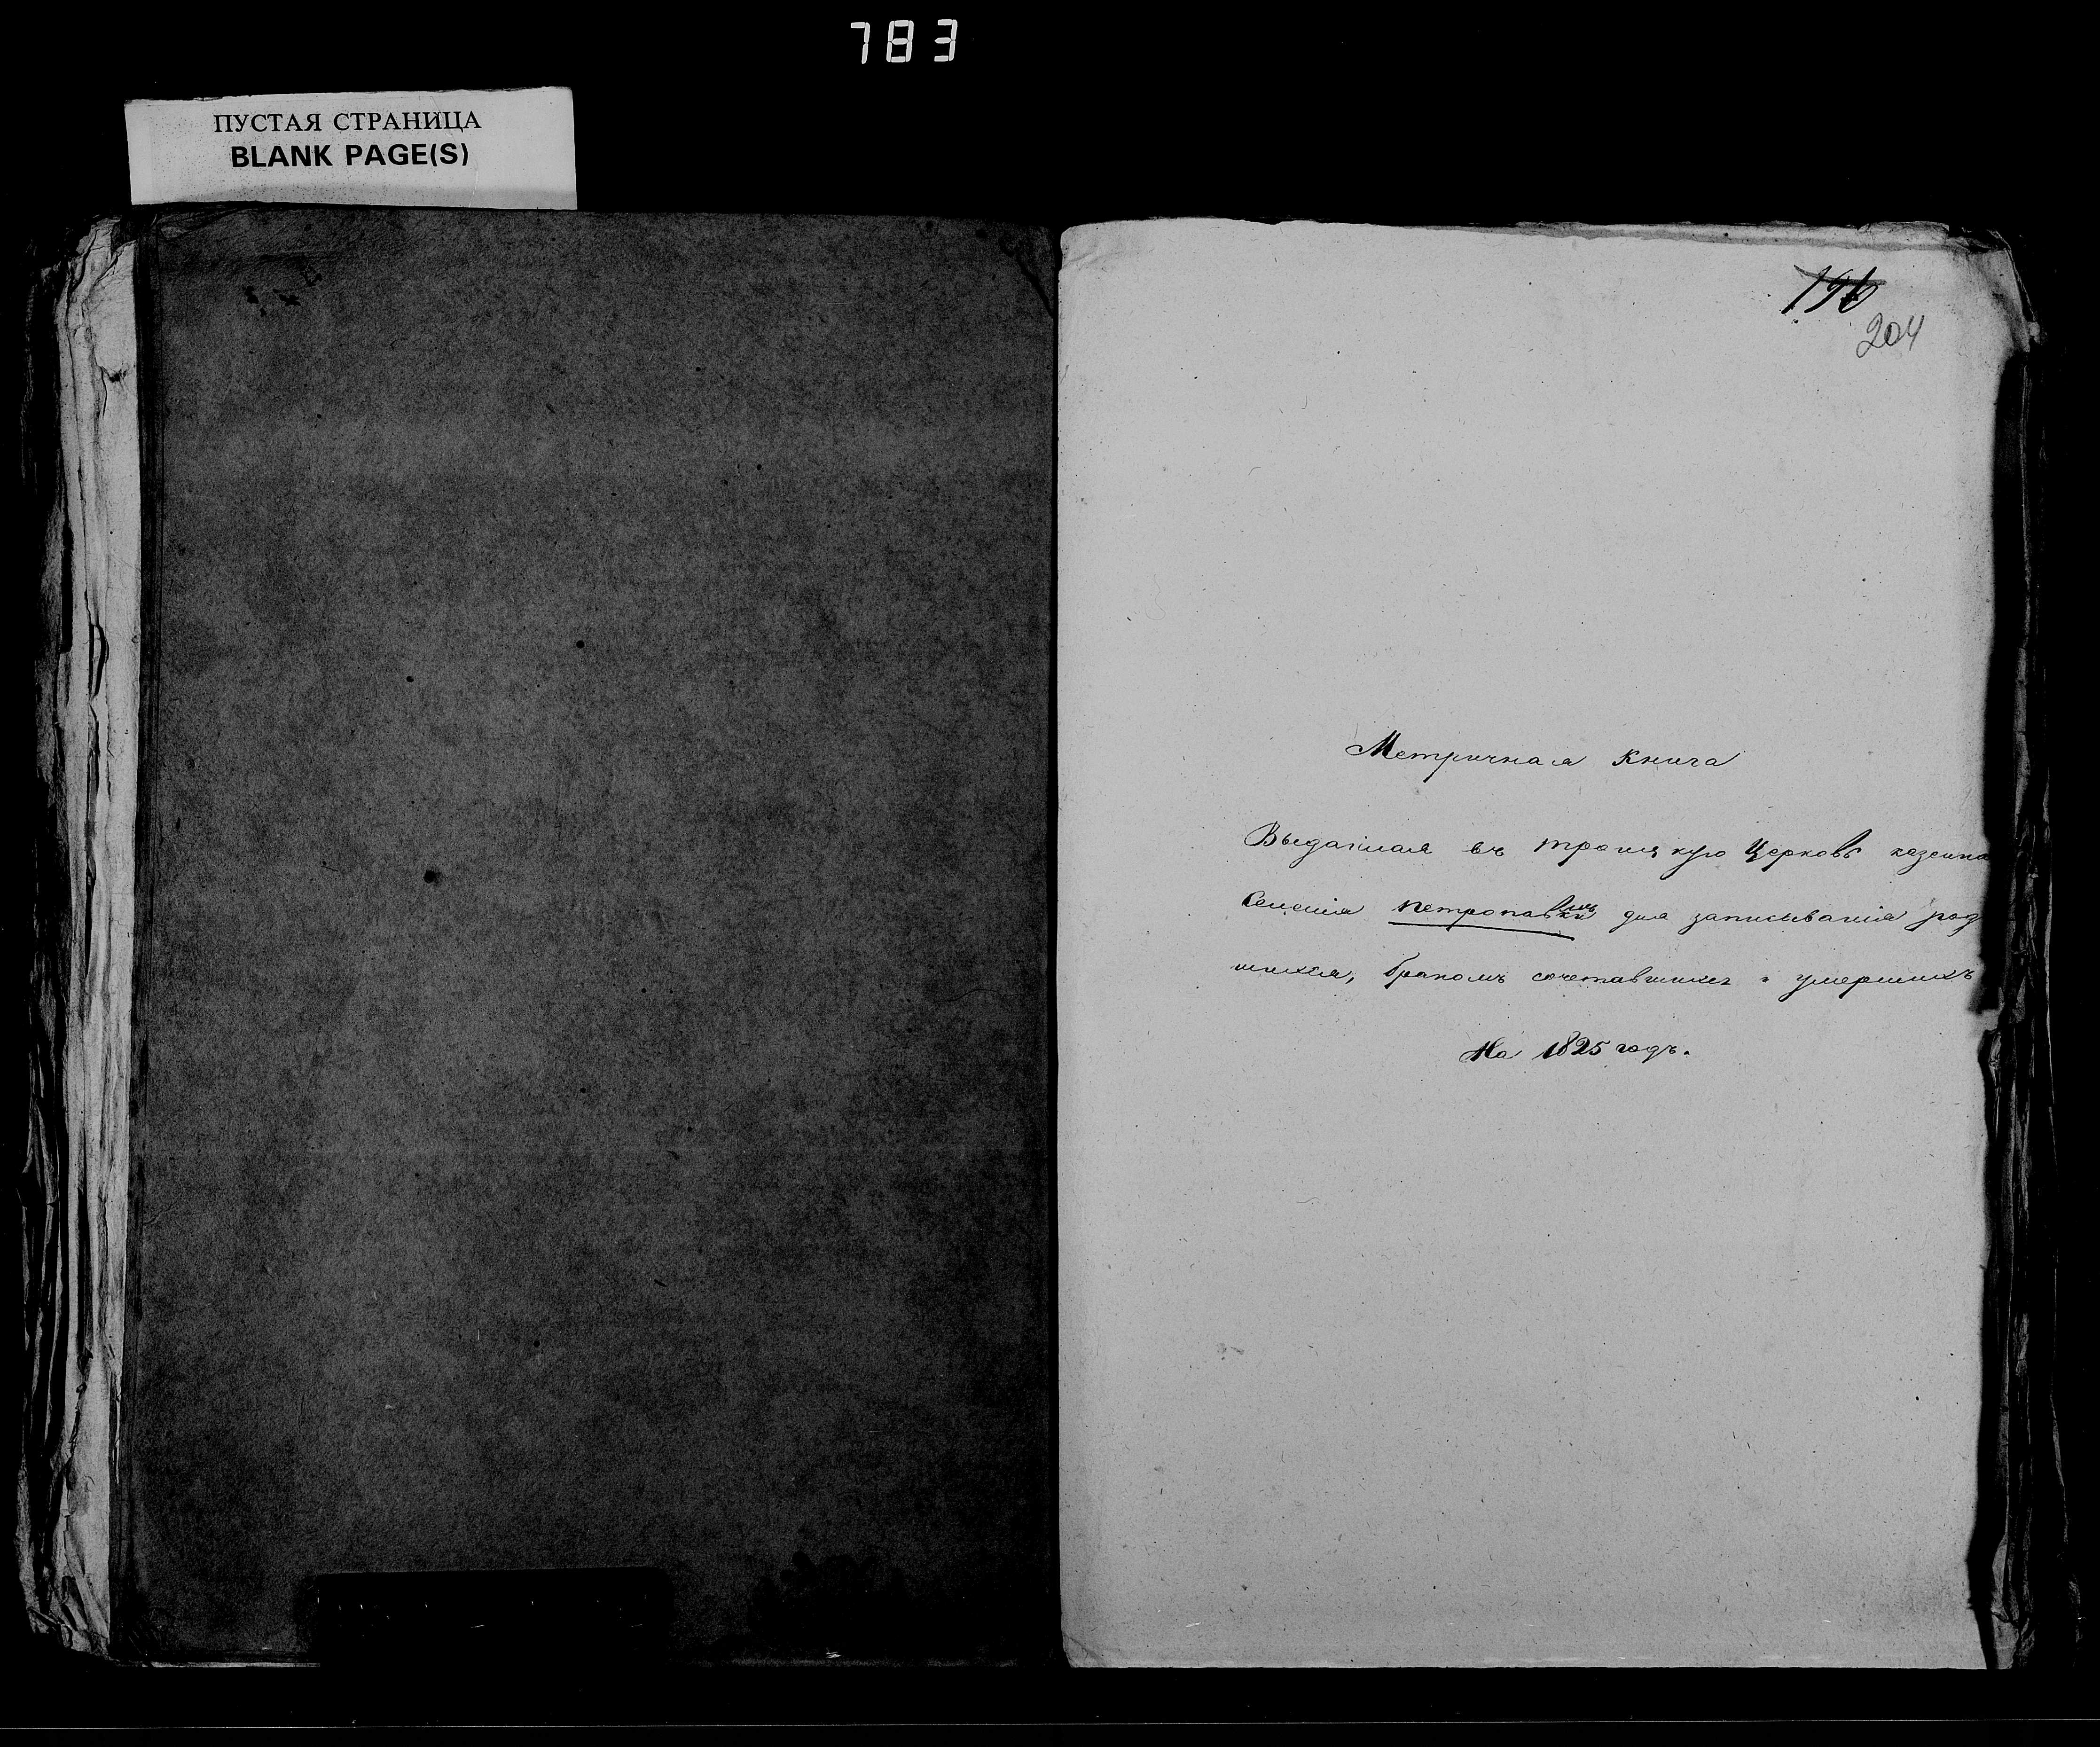 783
ПУСТАЯ СТРАНИЦА
BLANK PAGE(S)
196
204
Метричная Книга
Выданная въ троицкую Церковь казенна
Селенія петропавки для записыванія род
шихся, бракомъ сочетавшихся и умершихъ
На 1825 годъ.